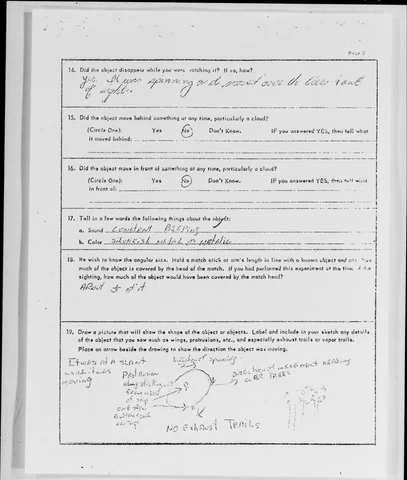 Page 3
14. Did the object disappear while you were watching it? If so, how?
yes. It was spinning and moved over the trees & out
of sight.
15. Did the object move behind something at any time, particularly a cloud?
(Circle One): Yes No Don't Know. IF you answered YES, then tell what
it moved behind:
16. Did the object move in front of something at any time, particularly a cloud?
(Circle One): Yes No Don't Know. IF you answered YES, then tell what
in front of:
17. Tell in a few words the following things about the object:
a. Sound CONSTANT BEEPING
b. Color SILVERISH METAL or METALIC
18. We wish to know the angular size. Hold a match stick at arm's length in line with a known object and note how
much of the object is covered by the head of the match. If you had performed this experiment at the time of the
sighting, how much of the object would have been covered by the match head?
About of it
19. Draw a picture that will show the shape of the object or objects. Label and include in your sketch any details
of the object that you saw such as wings, protrusions, etc., and especially exhaust trails or vapor trails.
Place an arrow beside the drawing to show the direction the object was moving.
It was at a slant
while it was
moving
Direction of spinning
Protrusion
sticking out
from
of ship
on top
Direction of movement heading
over trees
NO EXHAUST TRAILS